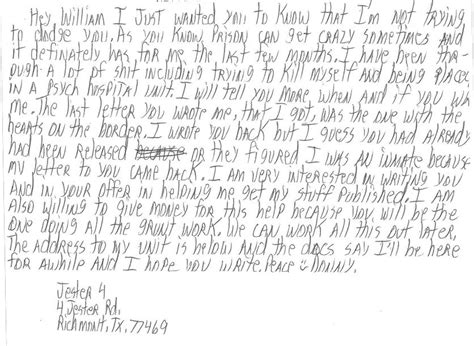 Hey, William I Just wanted you to know that I'm not trying
to dodge you. As you know, Prison can get crazy sometimes and
it definately has for me the last few months. I have been thr
ough a lot of shit including trying to kill myself and being place
in a psych hospital unit. I will tell you more when and if you w
me. The last letter you wrote me, that I got, was the one with the
hearts on the border. I wrote you back but I guess you had already
had been released because or they figured I was an inmate because
my letter to you came back. I am very interested in writing you
And in your offer in helping me get my stuff published. I am
Also willing to give money for this help because you will be the
one doing all the grunt work. We can work all this out later.
The address to my unit is below and the docs say I'll be here
for awhile and I hope you write. Peace
Jester 4
4 Jester Rd.
Richmount, TX, 77469